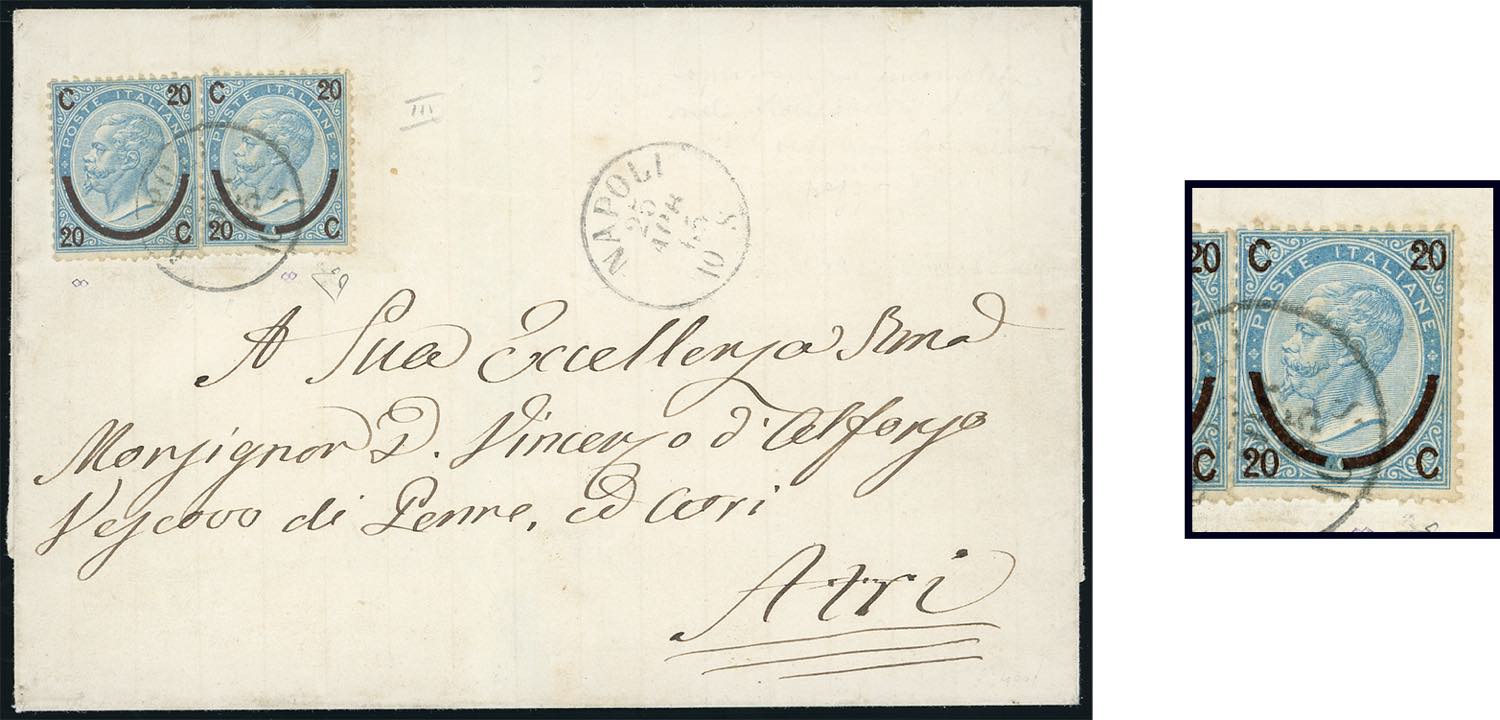 C 20 C 20
POSTE ITALIANE POSTE ITALIANE
20 C 20 C
III
NAPOLI
25
APR
65
10 S
8 8
A Sua Eccellenza Rma
Monsignor D. Vincenzo d'Alfonzo
Vescovo di Penne, ed Atri
Atri
20 C 20
POSTE ITALIANE
C 20 C